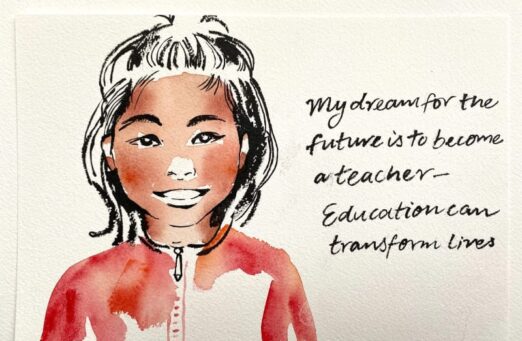 My dream for the
future is to become
a teacher—
Education can
transform lives